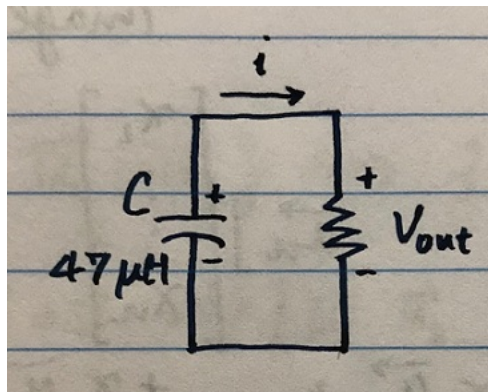 i
C
+
-
47 μH
+
Vout
-